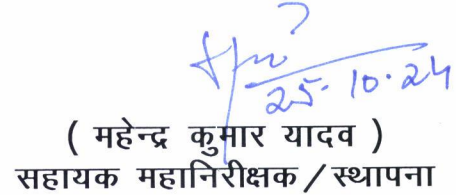 25.10.24
( महेन्द्र कुमार यादव )
सहायक महानिरीक्षक / स्थापना